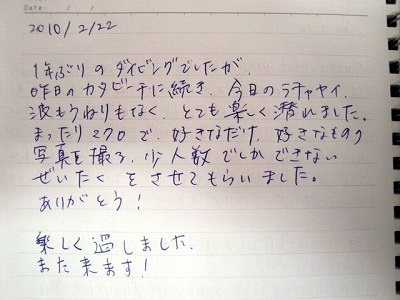 Date
2010/2/22
1年ぶりのダイビングでしたが、
昨日のカタビーチに続き、今日のラチャヤイ、
波もうねりもなく、とても楽しく潜れました。
まったり270で、好きなだけ、好きなもの
写真を撮る、少人数でしかできない
ぜいたくをさせてもらいました。
ありがとう!
楽しく過しました、
また来ます!